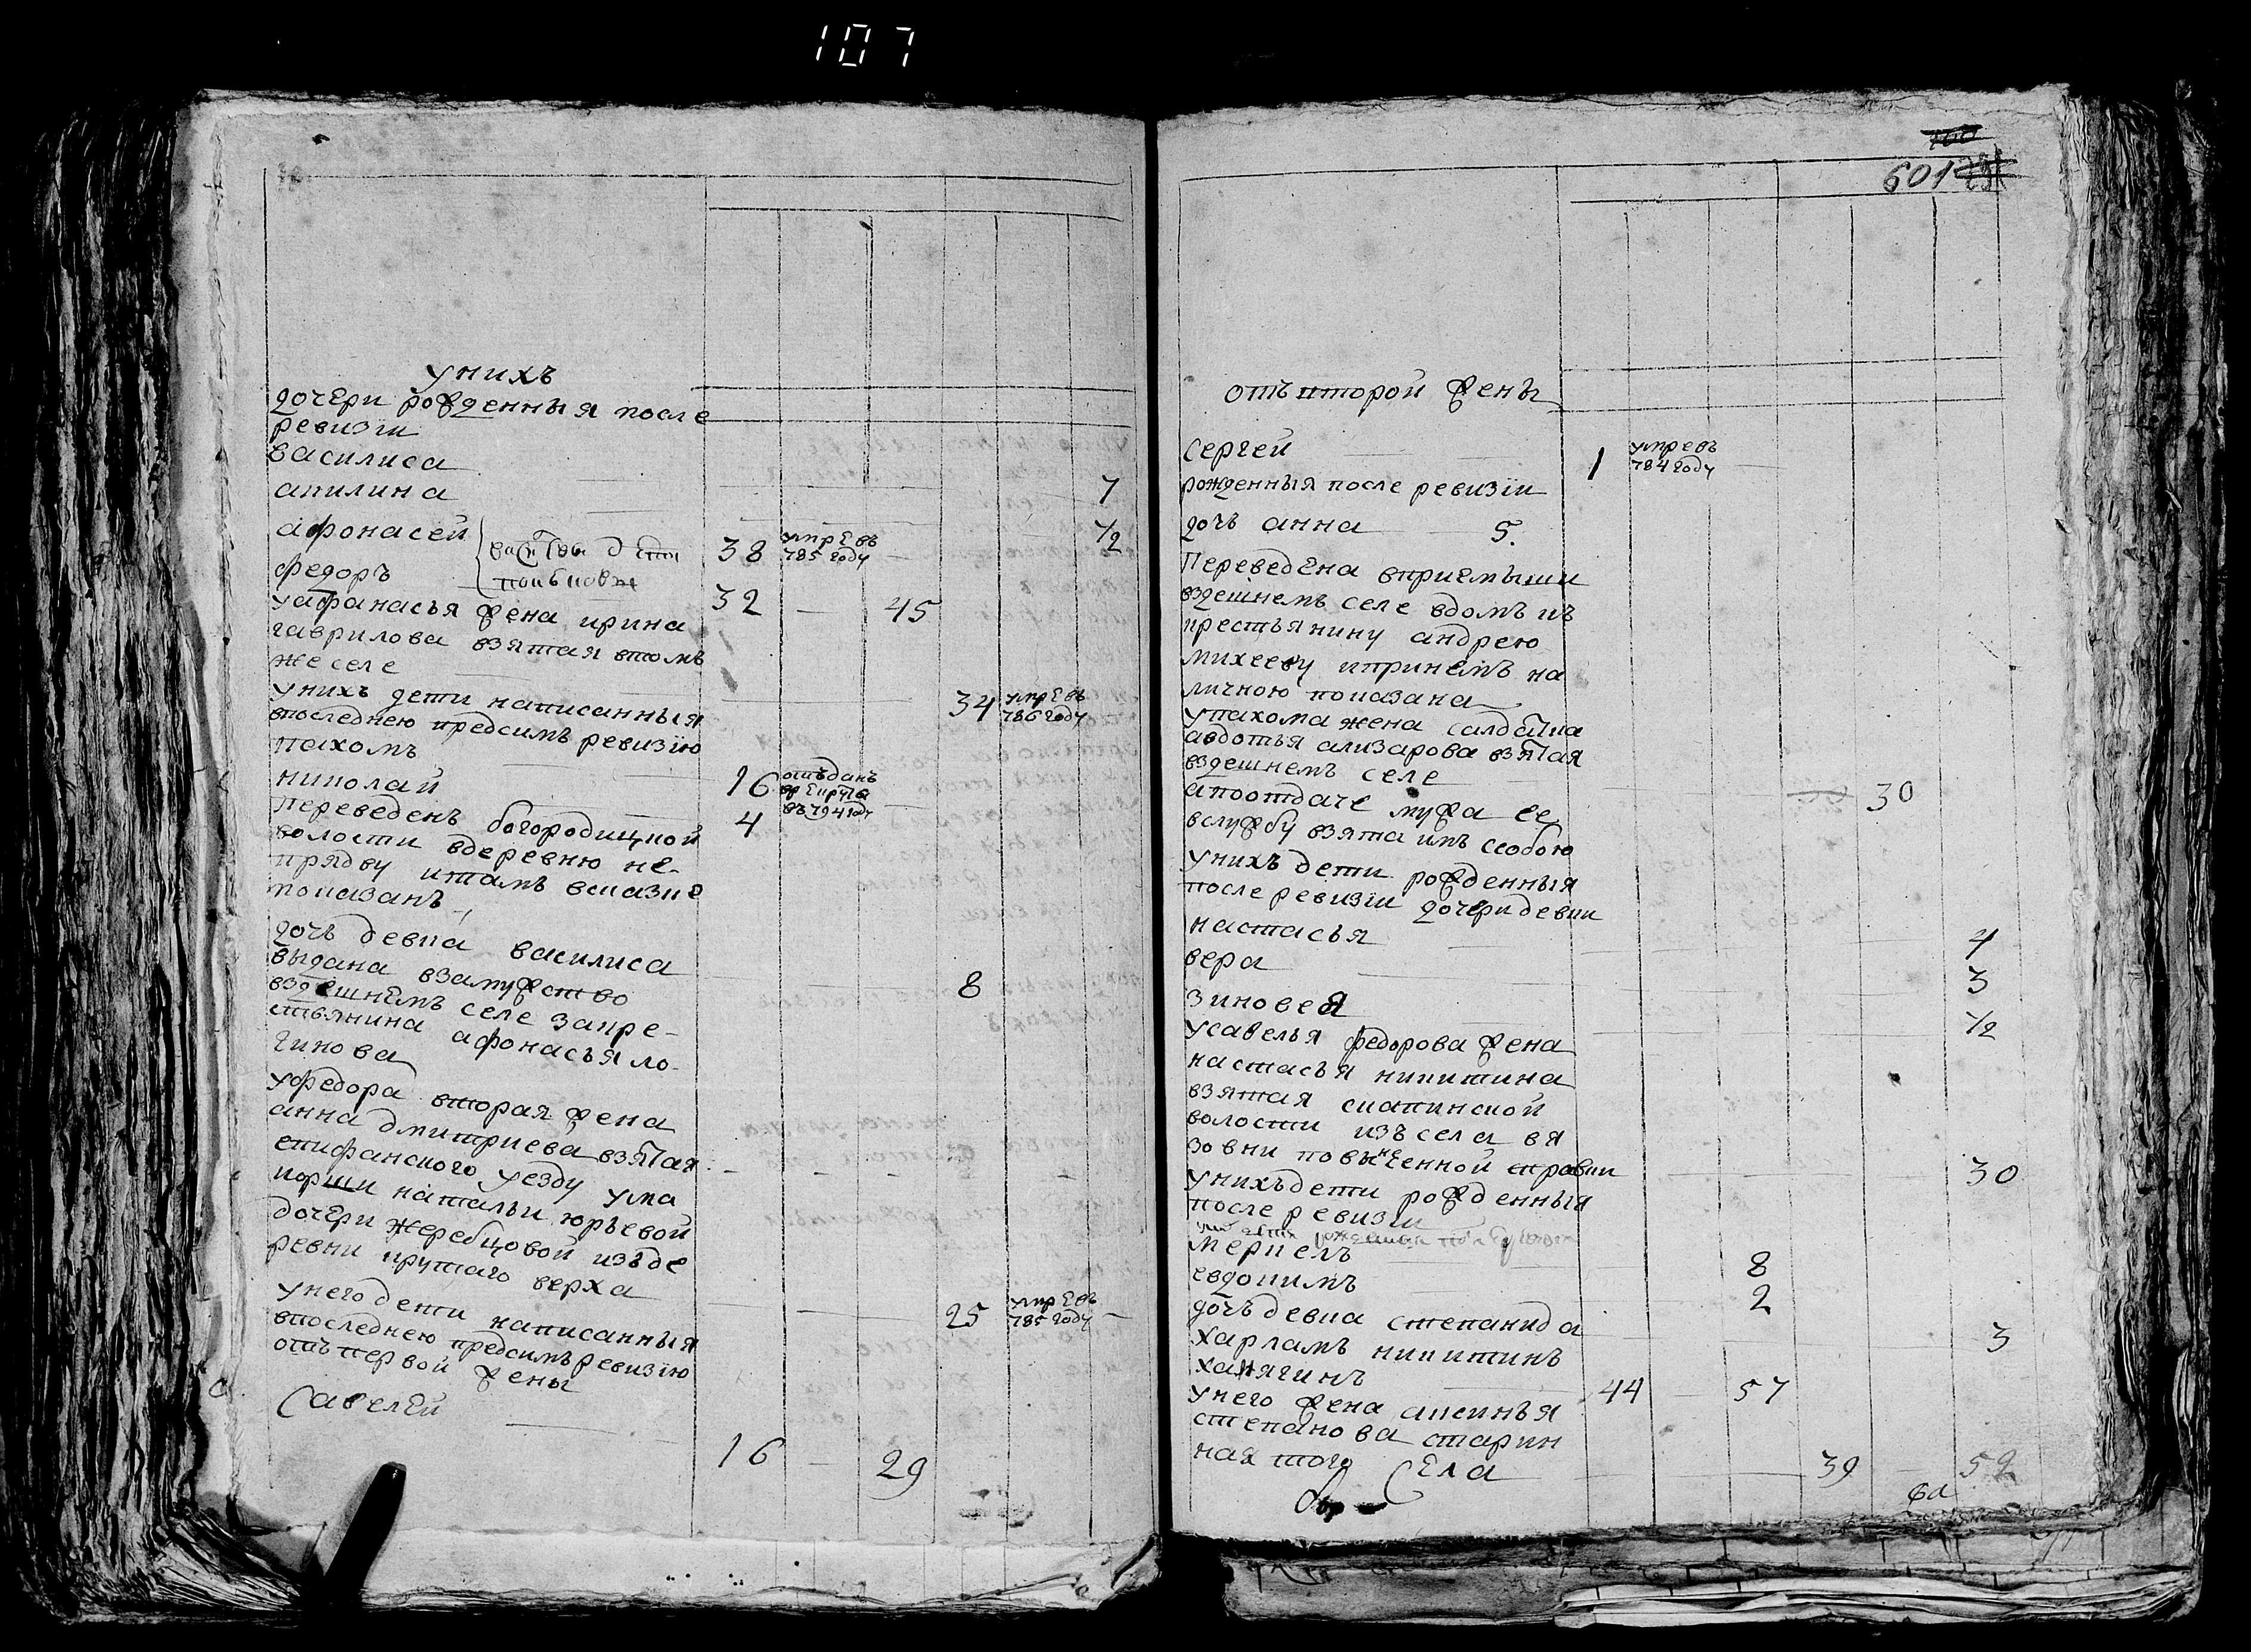 107
унихъ
дочери рожденныя после
ревизги
василиса
акилина 7
афонасей 1/2
38 умре въ 785 году
федоръ
32 — 45
уафанасья жена ирина
гаврилова взятая втомъ
же селе
34 умре въ 786 году
унихъ дети написанныя
впоследнею предсимъ ревизию
пахомъ
16 отъданъ врекруты въ 794 году
николай
4
переведенъ богородицкой
волости вдеревню не-
прядву итамъ всказке
показанъ
дочь девка василиса
выдана взамужство
вздешнемъ селе закре-
8
стьянина афонасья ло-
гинова
уфедора вторая жена
анна дмитриева взятая
епифанского уезду ума
иорши натальи юрьевой
дочери жеребцовой изъде
ревни крутаго верха
25 умре въ 785 году
унего дети написанныя
впоследнею предсимъ ревизию
отъ первой жены
Савелей
16 — 29
100
601
отъ второй жены
сергей
1 умре въ 784 году
рожденныя после ревизïи
дочь анна 5.
Переведена вприемыши
вздешнемъ селе вдомъ къ
крестьянину андрею
михееву ипринемъ на
личною показана
упахома жена салдатка
авдотья ализарова взятая
вздешнемъ селе
30
апоотдаче мужа ее
вслужбу взята имъ ссобою
унихъ дети рожденныя
после ревизïи дочери девки
настасья 4
вера 3
зиновея 1/2
усавелья федорова жена
настасья никитина
взятая скапинской
волости изъ села вя
зовни повенченной
30
унихъ дети рожденныя
после ревизги
меркелъ 8
евдокимъ 2
дочь девка степанида 3
харламъ никитинъ
ханягинъ
44 57
унего жена аксинья
степанова старин
ная того Села
39 52